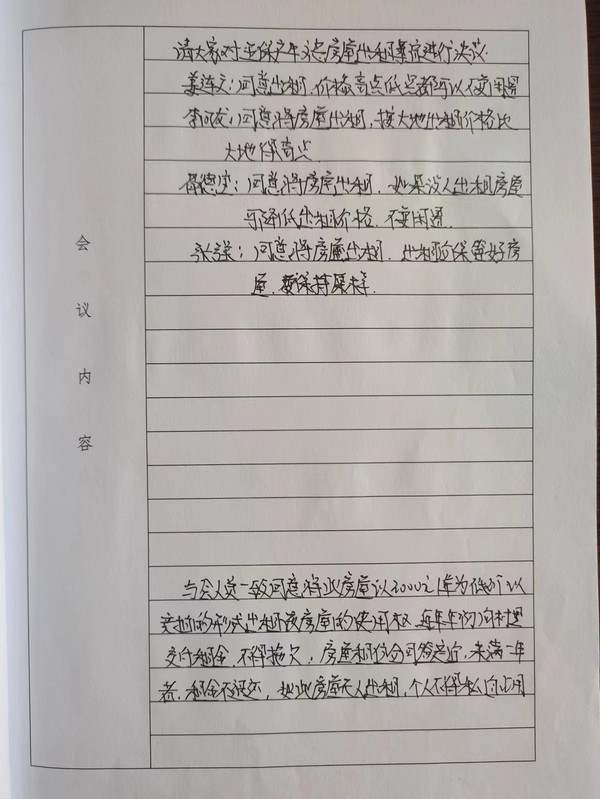 会议内容
请大家对 房屋出租事宜进行决议.
姜连文:同意出租,价格高点低点都可以不要闲置
李 龙:同意将房屋出租,按大地出租价格比
大地得高点.
同意将房屋出租,如果没人出租房屋
可降低出租价格,不要闲置.
张强:同意将房屋出租,出租后保留好房
屋,要保持原样.
与会人员一致同意将此房屋以3000元1年为低价以
的形式出租该房屋的使用权,每年年初向村里
交付租金,不得拖欠,房屋租住合同签定后,未满一年
者,租金不退还,如此房屋无人出租,个人不得私自占用